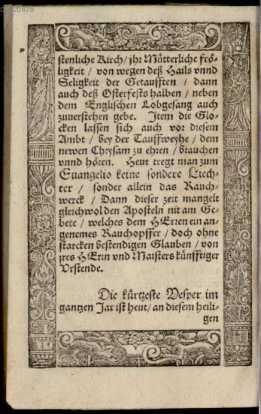 stenliche Kirch/ ihr Mütterliche frö-
ligkeit / von wegen deß Hails vnnd
Seligkeit der Getaufften / dann
auch deß Osterfests halben / neben
dem Englischen Lobgesang auch
zuuerstehen gebe. Item die Glo-
cken lassen sich auch vor disem
Ambt / bey der Tauffweyhe / dem
newen Chrysam zu ehren / brauchen
vnnd hören. Heut tregt man zum
Euangelio keine sondere Liech-
ter / sonder allein das Rauch-
werck / Dann dieser zeit mangelt
gleichwol den Aposteln nit am Ge-
bett / welches dem HErren ein an-
genemes Rauchopffer / doch ohne
starcken bestendigen Glauben / von
jres HErrn vnd Maisters künfftiger
Vrstende.
Die kürtzeste Vesper im
gantzen Jar ist heut/ an diesem heili-
gen